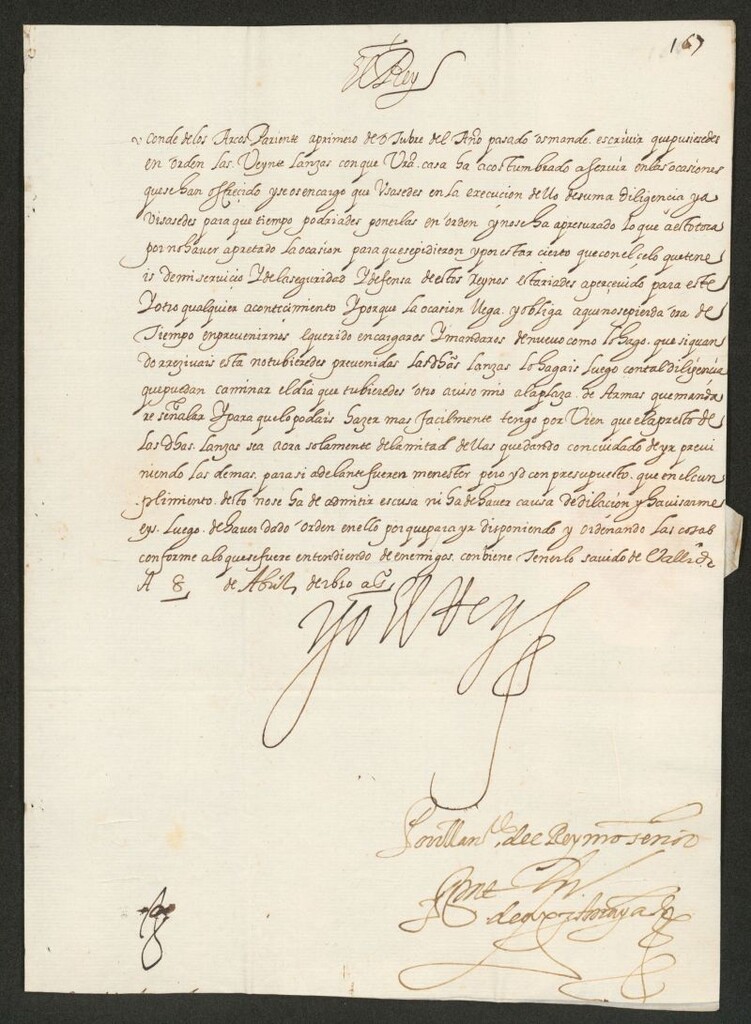 167
El Rey
Conde de los Arcos Pariente a primero de otubre del Año pasado os mande escrivir que pusiesedes
en orden las Veynte Lanzas con que Vra casa ha acostumbrado a servir en las ocasiones
que se han offrecido y se os encargo que Usasedes en la execucion dello de suma diligencia y a
visasedes para que tiempo podriades ponerlas en orden y no se ha apresurado lo que a esto toca
por no haver apretado La ocasion para que se pidieron y por estar cierto que con el celo que tene
is de mi servicio Y de la seguridad Y defensa destos Reynos estariades apercevido para este
Y otro qualquier acontecimiento Y porque La ocasion llega y obliga a que no se pierda ora de
Tiempo en prevenirnos E querido encargaros Y mandaros de nuevo como lo hago que si quan
do rrezivais esta no tubieredes prevenidas Las dhas Lanzas Lo hagais luego con tal diligencia
que puedan caminar el dia que tubieredes otro aviso mio a la plaza de Armas que manda
re señalar Y para que lo podais hazer mas facilmente tengo por Vien que el apresto de
Las dhas Lanzas sea aora solamente de la mitad dellas quedando con cuidado de yr previ
niendo Las demas para si adelante fueren menester pero yd con presupuesto que en el cun
plimiento desto no se ha de admitir escusa ni ha de haver causa de dilacion y havisarme
eys Luego de haver dado orden en ello porque para yr disponiendo y ordenando Las cosas
conforme a lo que se fuere entendiendo de enemigos conbiene Tenerlo savido de Vallid
A 8 de Abril de 1610 as
Yo El Rey
Por mdo del Rey nro señor